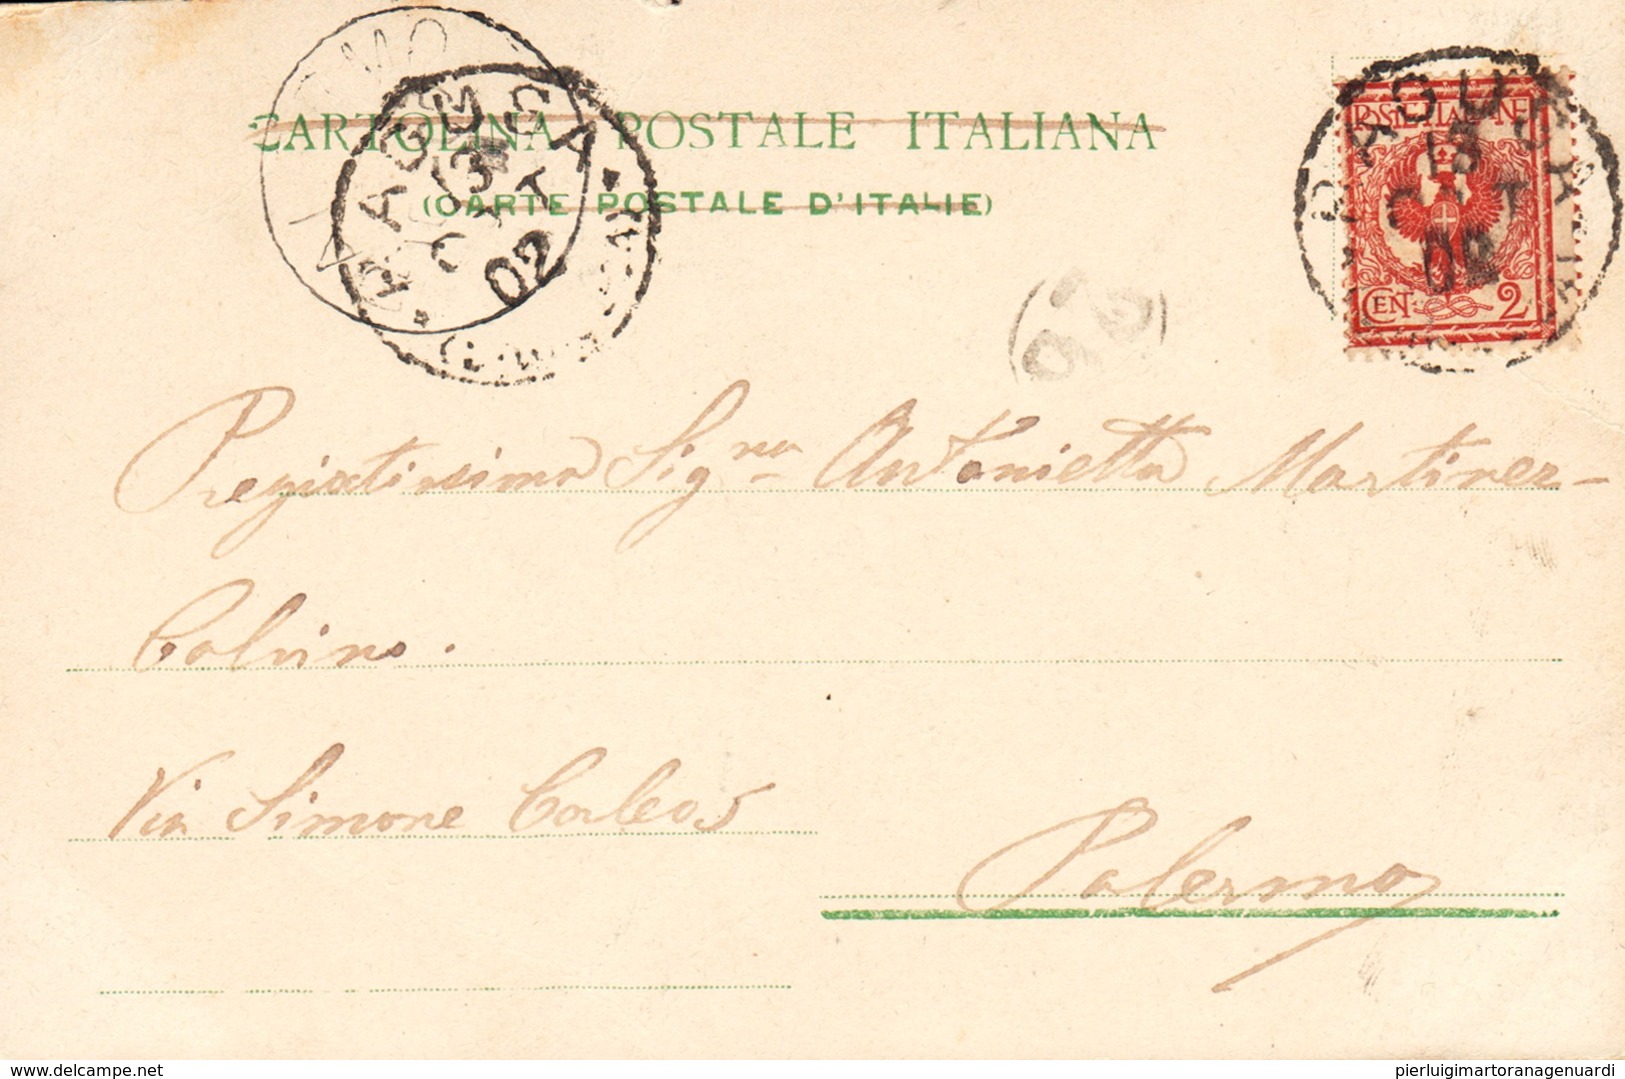 CARTOLINA POSTALE ITALIANA
(CARTE POSTALE D'ITALIE)
RAGUSA
13
OTT
02
RAGUSA
13
OTT
02
POSTE ITALIANE
CENT. 2
92
Pregiatissima Sig.na Antonietta Martinez-
Calvino.
Via Simone Corleo 5
Palermo
delcampe.net
pierluigimartoranagenuardi